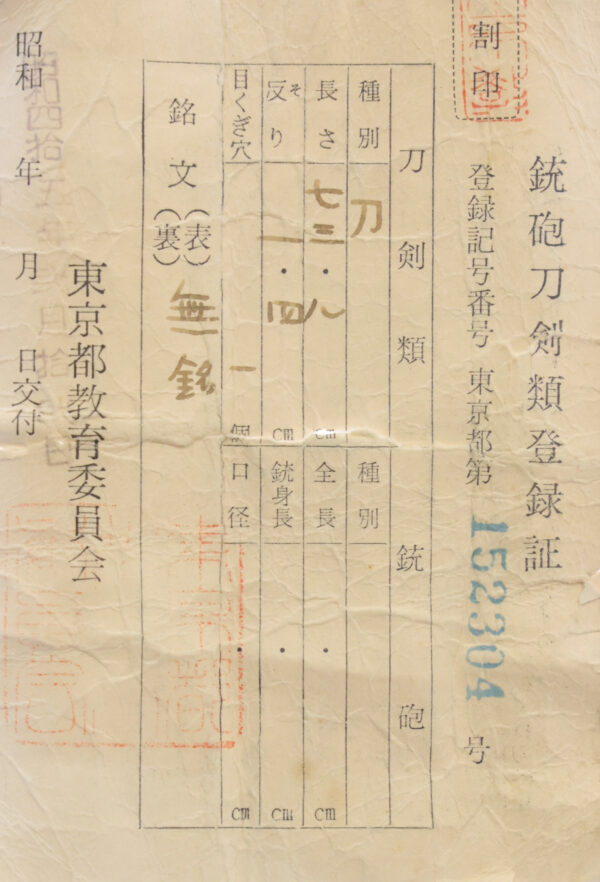 割印
銃砲刀剣類登録証
登録記号番号 東京都第 152304 号
刀剣類 銃砲
種別 刀 種別
長さ 七三・八 cm 全長 ・ cm
反り そ 一・四 cm 銃身長 ・ cm
目くぎ穴 一 個 口径 ・ cm
銘文 (表) (裏) 無銘
東京都教育委員会
昭和 年 月 日交付